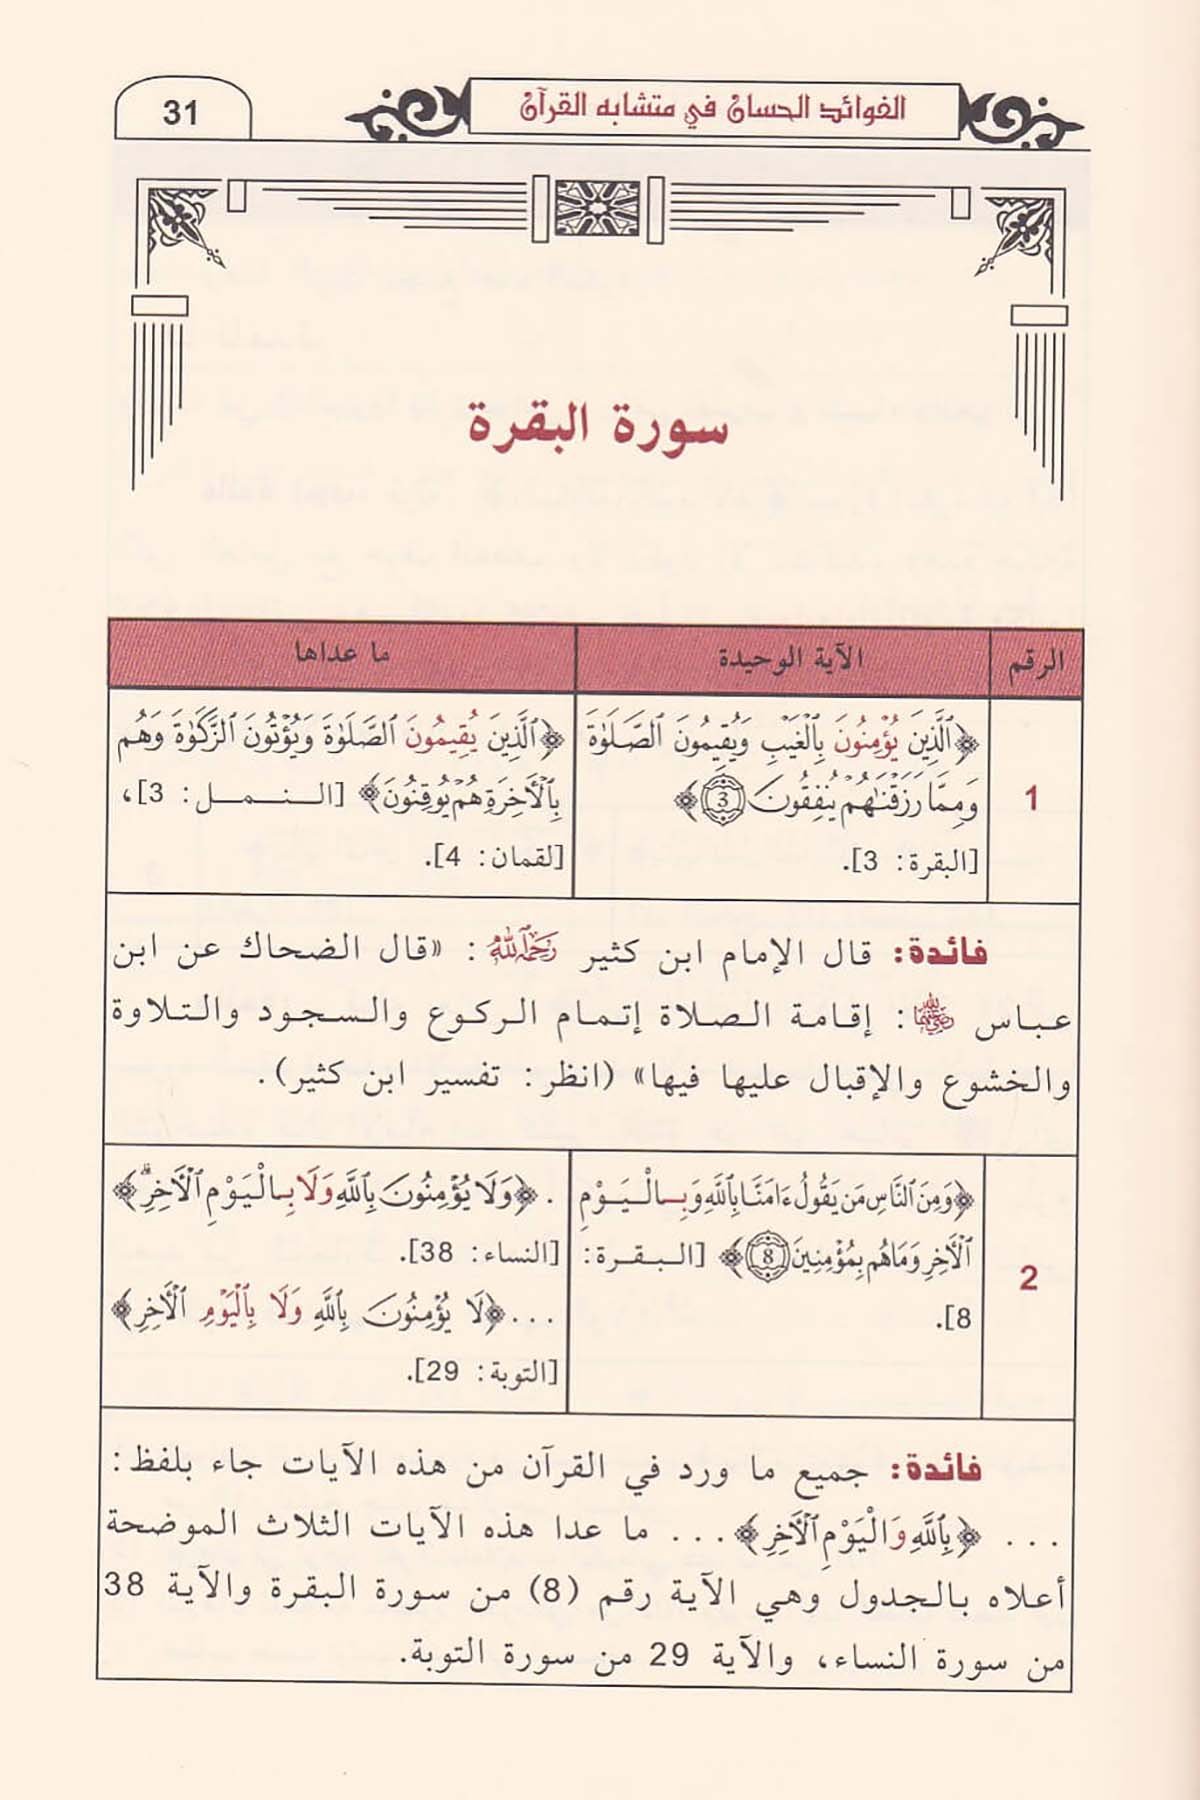 الفوائد الحسان في متشابه القرآن
31
سورة البقرة
الرقم
الآية الوحيدة
ما عداها
1
﴿ٱلَّذِينَ يُؤۡمِنُونَ بِٱلۡغَيۡبِ وَيُقِيمُونَ ٱلصَّلَوٰةَ
وَمِمَّا رَزَقۡنَٰهُمۡ يُنفِقُونَ 3﴾
[البقرة: 3].
﴿ٱلَّذِينَ يُقِيمُونَ ٱلصَّلَوٰةَ وَيُؤۡتُونَ ٱلزَّكَوٰةَ وَهُم
بِٱلۡأٓخِرَةِ هُمۡ يُوقِنُونَ﴾ [النمل: 3]،
[لقمان: 4].
فائدة: قال الإمام ابن كثير رَحِمَهُ ٱللَّهُ: «قال الضحاك عن ابن
عباس رَضِيَ ٱللَّهُ عَنْهُمَا: إقامة الصلاة إتمام الركوع والسجود والتلاوة
والخشوع والإقبال عليها فيها» (انظر: تفسير ابن كثير).
2
﴿وَمِنَ ٱلنَّاسِ مَن يَقُولُ ءَامَنَّا بِٱللَّهِ وَبِٱلۡيَوۡمِ
ٱلۡأٓخِرِ وَمَا هُم بِمُؤۡمِنِينَ 8﴾ [البقرة:
8].
. ﴿وَلَا يُؤۡمِنُونَ بِٱللَّهِ وَلَا بِٱلۡيَوۡمِ ٱلۡأٓخِرِۗ﴾
[النساء: 38].
...﴿لَا يُؤۡمِنُونَ بِٱللَّهِ وَلَا بِٱلۡيَوۡمِ ٱلۡأٓخِرِ﴾
[التوبة: 29].
فائدة: جميع ما ورد في القرآن من هذه الآيات جاء بلفظ:
... ﴿بِٱللَّهِ وَٱلۡيَوۡمِ ٱلۡأٓخِرِ﴾... ما عدا هذه الآيات الثلاث الموضحة
أعلاه بالجدول وهي الآية رقم (8) من سورة البقرة والآية 38
من سورة النساء، والآية 29 من سورة التوبة.